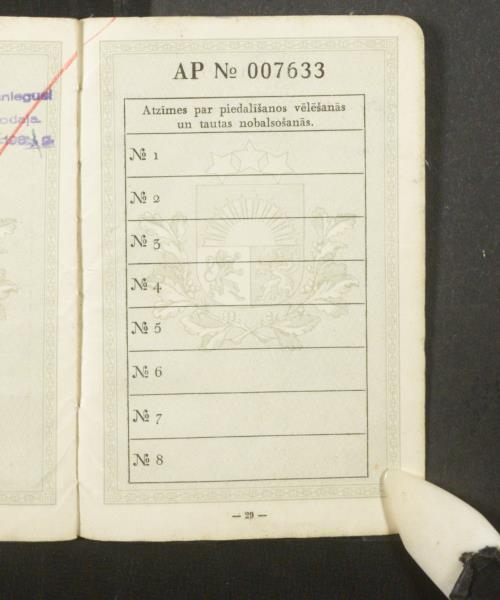 niegusi
odaļa
AP № 007633
Atzīmes par piedalīšanos vēlēšanās
un tautas nobalsošanās.
№ 1
№ 2
№ 3
№ 4
№ 5
№ 6
№ 7
№ 8
— 29 —